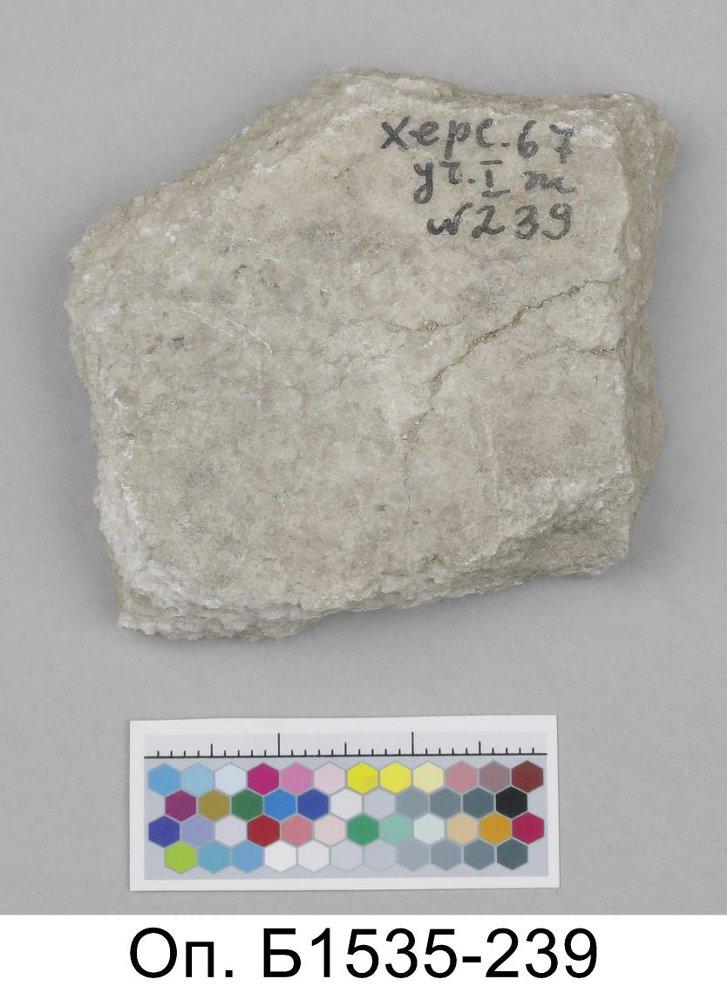 Херс. 67
уч. I ж
№239
Оп. Б1535-239